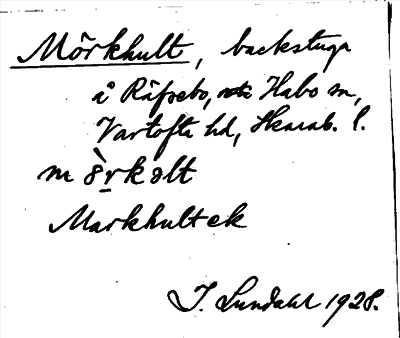 Mörkhult, backstuga
å Råssebo, Habo sn,
Vartofta hd, Skarab. l.
m ö̀rkəlt
Markhultek
I. Lundahl 1928.